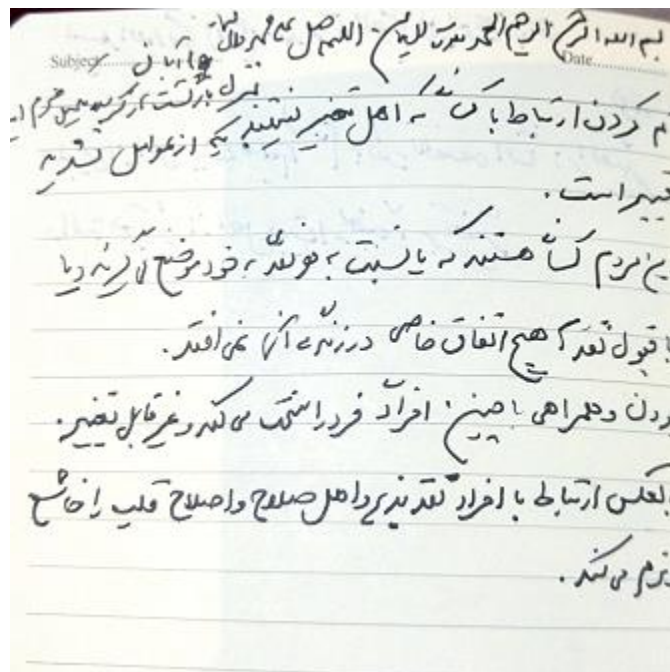 بسم الله الرحمن الرحیم الحمد لله رب العالمین. اللهم صل علی محمد
Subject: Date
کردن ارتباط با کسانی که اهل تغییر نیستند یکی از عوامل
تغییر است.
مردم کسانی هستند که یا نسبت به هر نقد به خود موضع می گیرند و یا
قبول نقد هیچ اتفاق خاصی در زندگی آنها نمی افتد.
و همراهی با چنین افرادی فرد را سخت می کند و غیر قابل تغییر.
ارتباط با افراد نقدپذیر و اهل صلاح و اصلاح قلب را خاشع
نرم می کند.